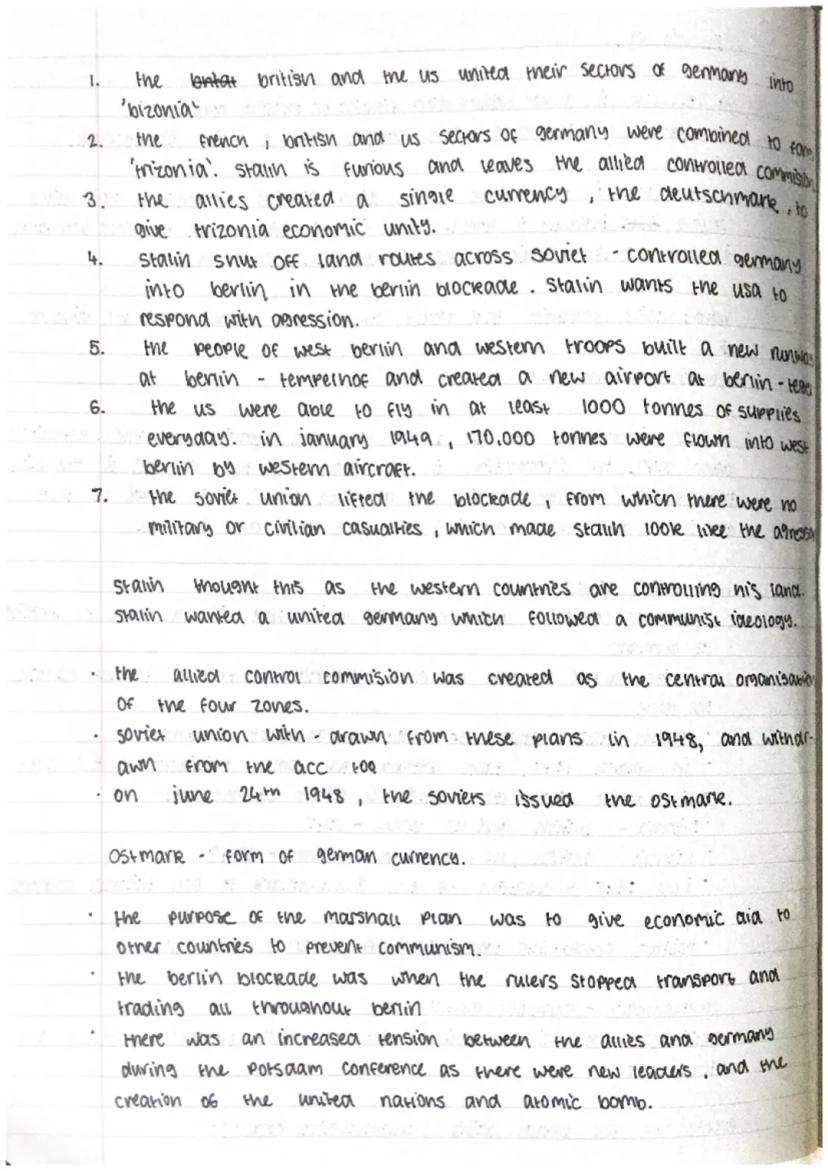 1. the british and the us united their sectors of germany into
'bizonia'
2. the french, british and us sectors of germany were combined to form
'trizonia'. stalin is furious and leaves the allied controlled commission
3. the allies created a single currency, the deutschmark, to
give trizonia economic unity.
4. stalin shut off land routes across soviet - controlled germany
into berlin in the berlin blockade. stalin wants the usa to
respond with agression.
5. the people of west berlin and western troops built a new runway
at berlin - tempelhof and created a new airport at berlin -
6. the us were able to fly in at least 1000 tonnes of supplies
everyday. in january 1949, 170,000 tonnes were flown into west
berlin by western aircraft.
7. the soviet union lifted the blockade, from which there were no
military or civilian casualties, which made stalin look like the agressor
stalin thought this as the western countries are controlling his land.
stalin wanted a united germany which followed a communist ideology.
· the allied control commision was created as the central organisation
of the four zones.
· soviet union with - drawn from these plans in 1948, and withdr-
awn from the acc too
· on june 24th 1948, the soviets issued the ostmark.
ostmark - form of german currency.
· the purpose of the marshall plan was to give economic aid to
other countries to prevent communism.
· the berlin blockade was when the rulers stopped transport and
trading all throughout berlin
· there was an increased tension between the allies and germany
during the potsdam conference as there were new leaders, and the
creation of the united nations and atomic bomb.